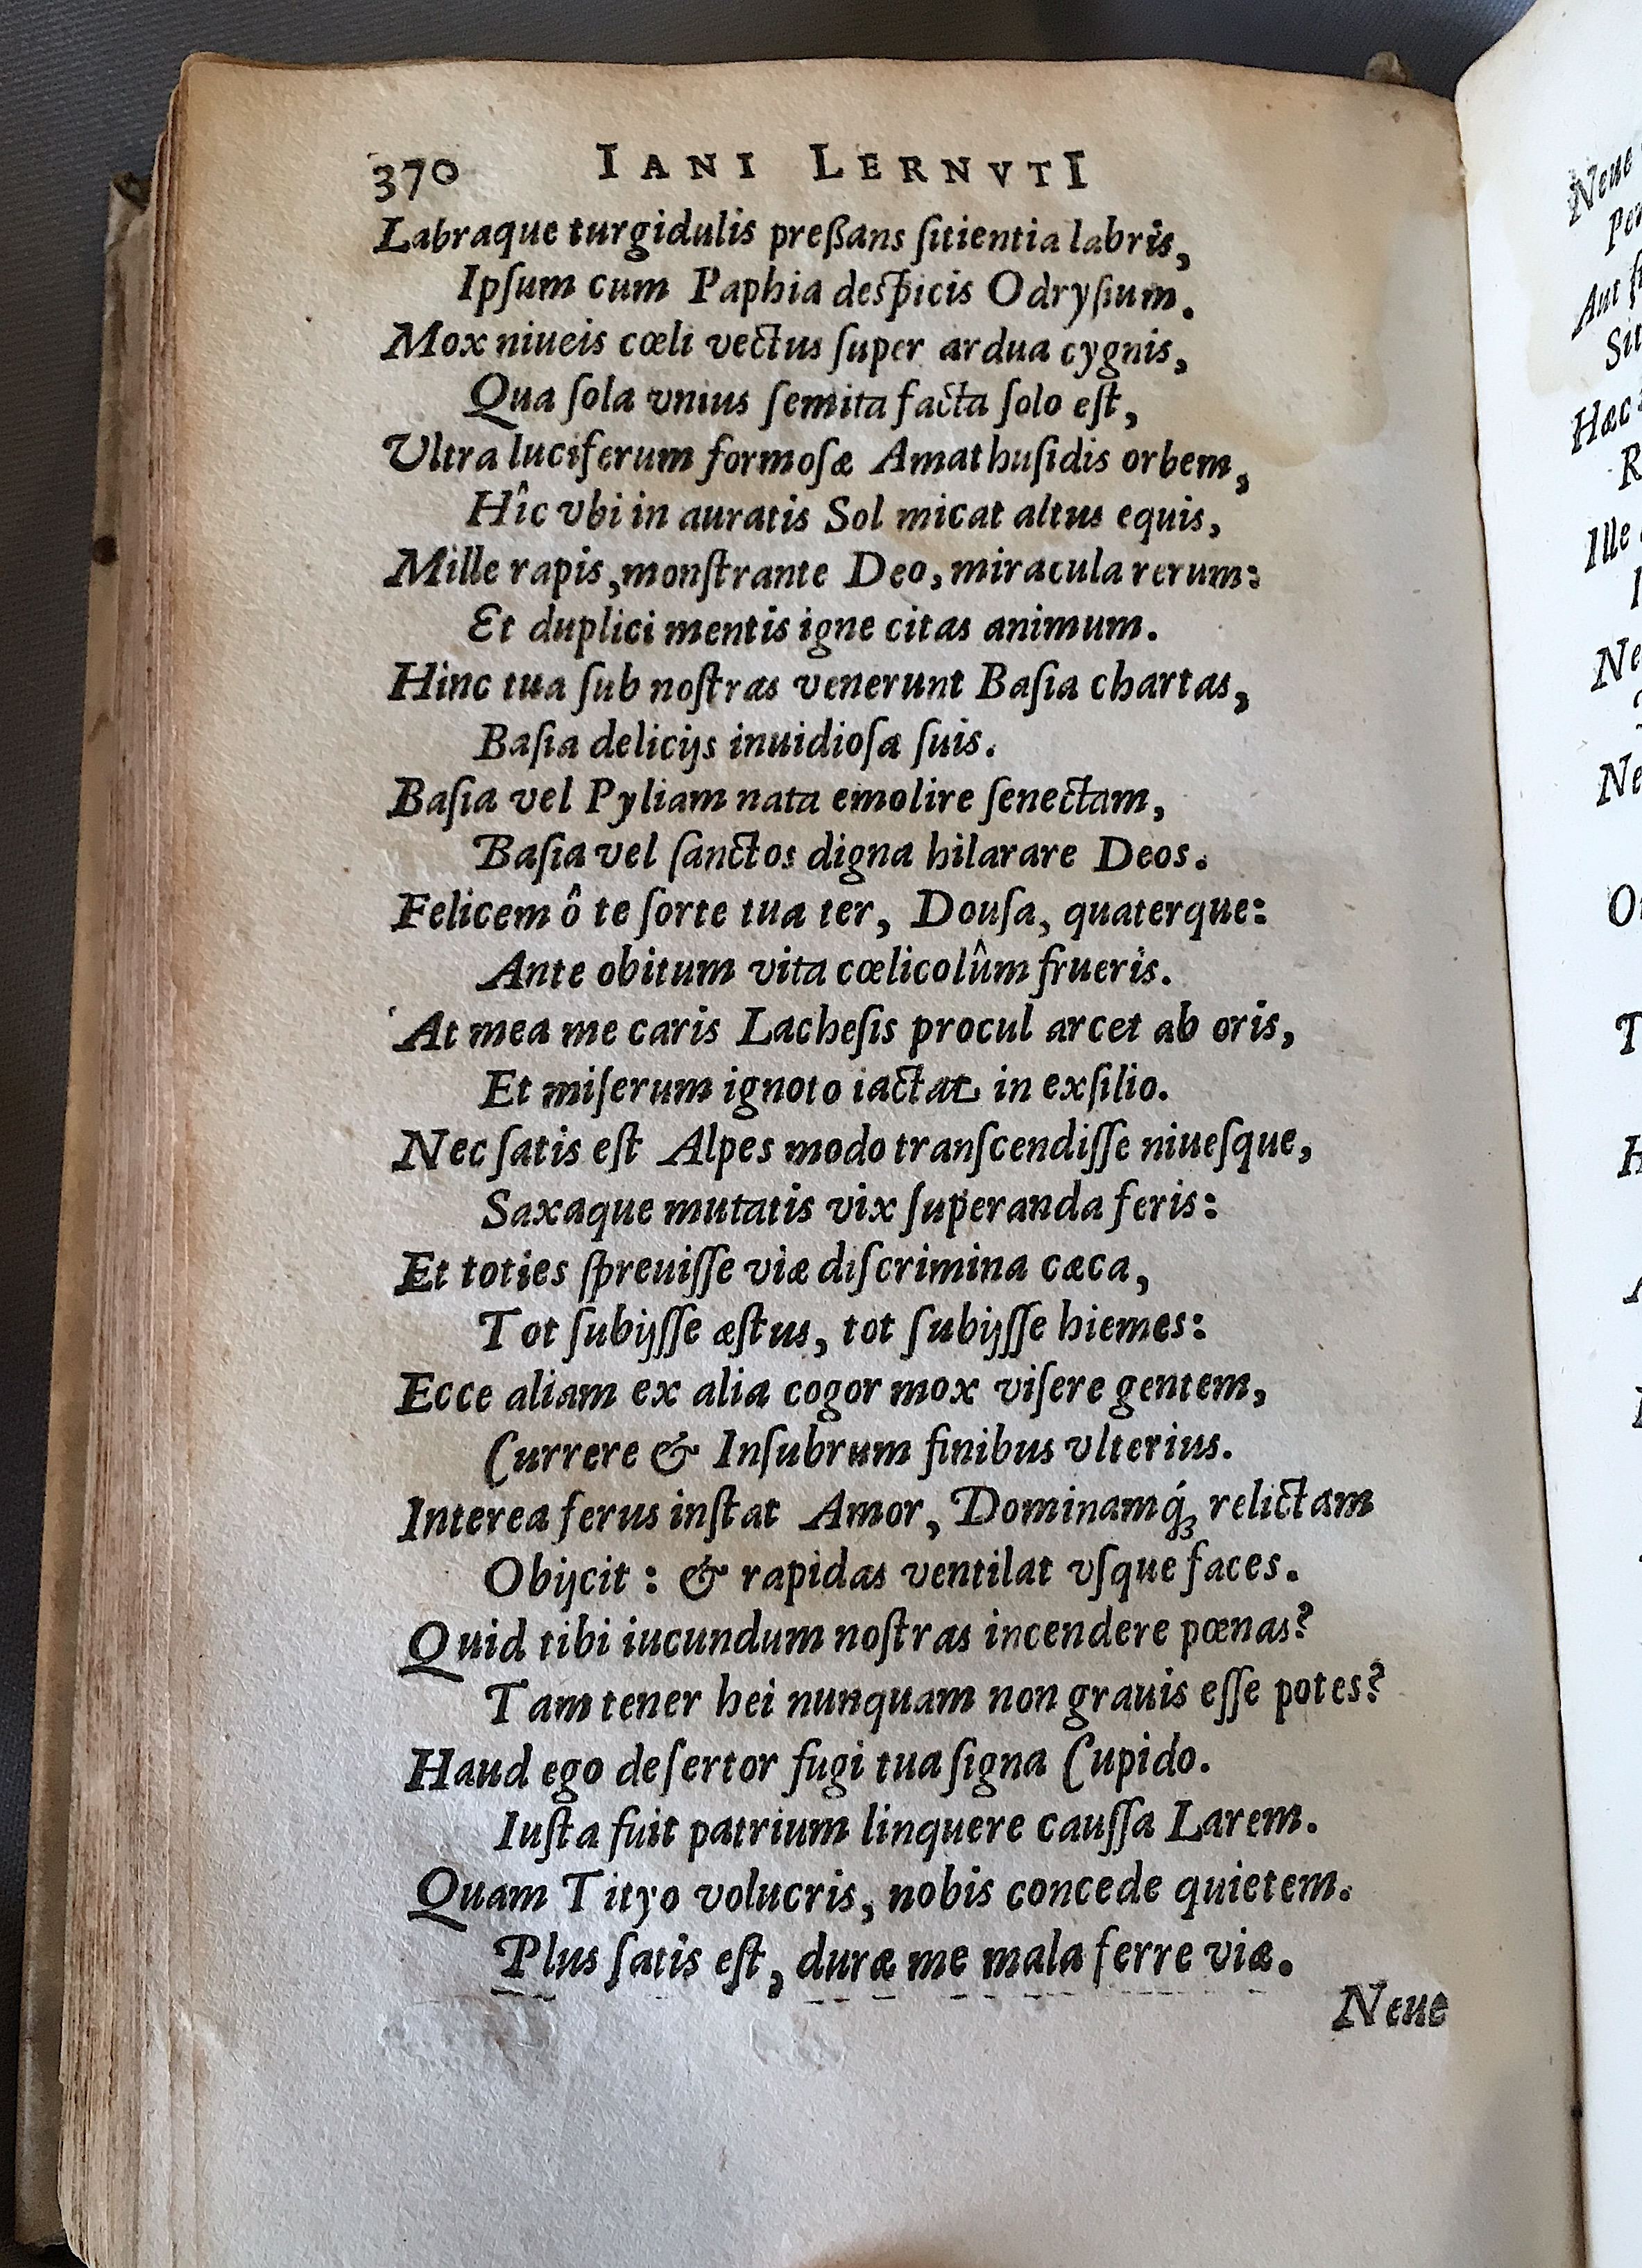 370 IANI LERNVTI
Labraque turgidulis preßans ſitientia labris,
Ipſum cum Paphia deſpicis Odryſium.
Mox niueis cœli vectus ſuper ardua cygnis,
Qua ſola vnius ſemita facta ſolo eſt,
Ultra luciferum formoſæ Amathuſidis orbem,
Hîc vbi in auratis Sol micat altus equis,
Mille rapis, monſtrante Deo, miracula rerum:
Et duplici mentis igne citas animum.
Hinc tua ſub noſtras venerunt Baſia chartas,
Baſia delicijs inuidioſa ſuis.
Baſia vel Pyliam nata emolire ſenectam,
Baſia vel ſanctos digna hilarare Deos.
Felicem ô te ſorte tua ter, Douſa, quaterque:
Ante obitum vita cœlicolûm frueris.
At mea me caris Lacheſis procul arcet ab oris,
Et miſerum ignoto iactat in exſilio.
Nec ſatis eſt Alpes modo tranſcendiſſe niueſque,
Saxaque mutatis vix ſuperanda feris:
Et toties ſpreuiſſe viæ diſcrimina cæca,
Tot ſubijſſe æſtus, tot ſubijſſe hiemes:
Ecce aliam ex alia cogor mox viſere gentem,
Currere & Inſubrum finibus vlterius.
Interea ferus inſtat Amor, Dominamq́ꝫ relictam
Obijcit : & rapidas ventilat vſque faces.
Quid tibi iucundum noſtras incendere pœnas?
Tam tener hei nunquam non grauis eſſe potes?
Haud ego deſertor fugi tua ſigna Cupido.
Iuſta fuit patrium linquere cauſſa Larem.
Quam Tityo volucris, nobis concede quietem.
Plus ſatis eſt, duræ me mala ferre viæ.
Neue